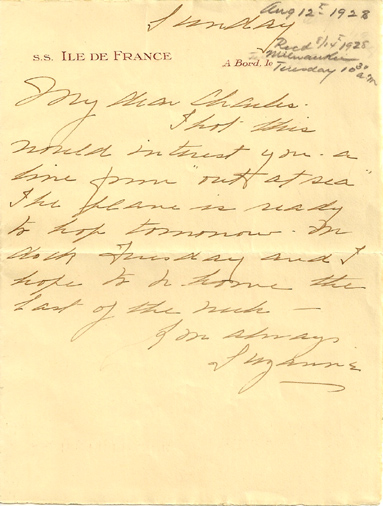 Sunday
Aug 12th 1928
S.S. ILE DE FRANCE
A Bord, le
Rec'd 8/14 1928
Milwaukee
Tuesday 10 30 a.m
My dear Charles.
I hot this
would interest you - a
line from "out at sea"
The plane is ready
to hop tomorrow. We
dock Tuesday and I
hope to be home the
last of the week -
I'm always
Suzanne